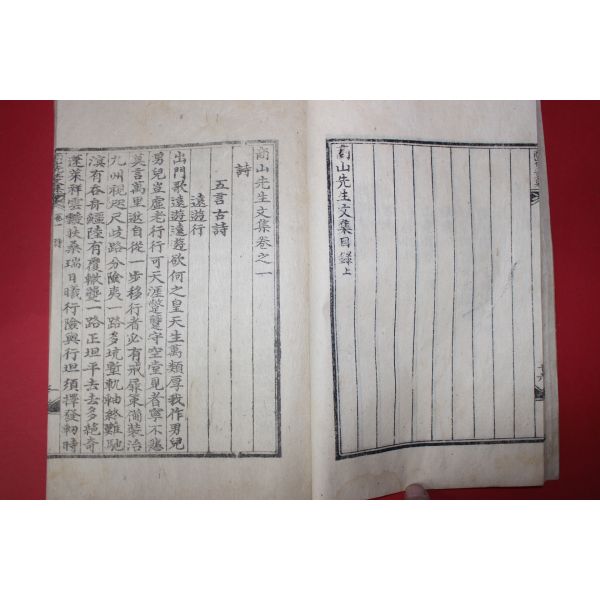 尙山先生文集目錄上
尙山先生文集卷之一
詩
五言古詩
遠遊行
出門歌遠遊遠遊欲何之皇天生萬類厚我作男兒
男兒豈虛老行行可天涯蹩躄守空堂見者寧不悲
莫言萬里遐自從一步移行者必有戒屝策備裝治
九州視咫尺歧路分險夷一路多坑塹軌軸終難馳
濱有吞舟鱷陸有覆轍一路正坦平去去多絶奇
蓬萊祥雲靉扶桑瑞日曦行險與行坦須擇發軔時
卷一 詩